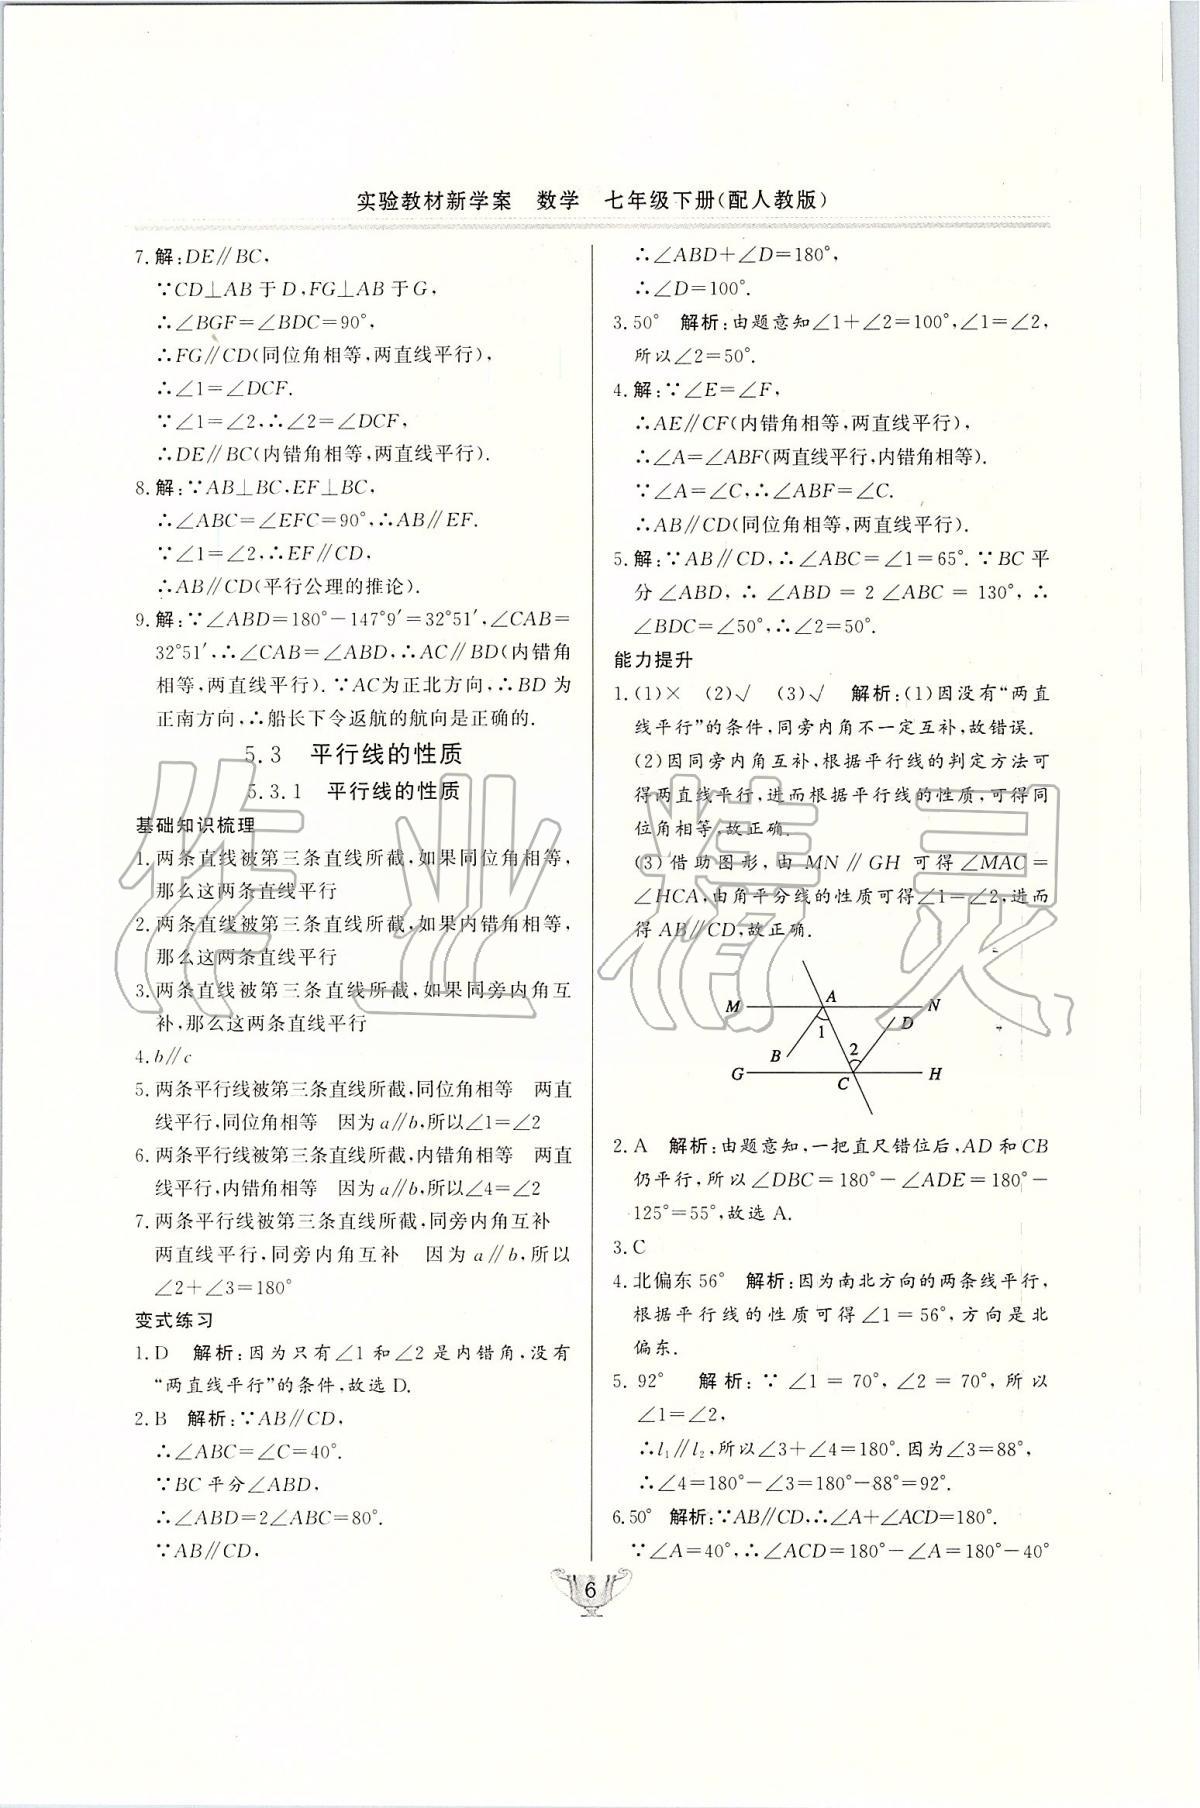 实验教材新学案 数学 七年级下册(配人教版)
7.解:DE∥BC,
∵CD⊥AB于D,FG⊥AB于G,
∴∠BGF=∠BDC=90°,
∴FG∥CD(同位角相等,两直线平行),
∴∠1=∠DCF.
∵∠1=∠2,∴∠2=∠DCF,
∴DE∥BC(内错角相等,两直线平行).
8.解:∵AB⊥BC,EF⊥BC,
∴∠ABC=∠EFC=90°,∴AB∥EF.
∵∠1=∠2,∴EF∥CD,
∴AB∥CD(平行公理的推论).
9.解:∵∠ABD=180°-147°9′=32°51′,∠CAB=
32°51′,∴∠CAB=∠ABD,∴AC∥BD(内错角
相等,两直线平行).∵AC为正北方向,∴BD为
正南方向,∴船长下令返航的航向是正确的.
5.3 平行线的性质
5.3.1 平行线的性质
基础知识梳理
1.两条直线被第三条直线所截,如果同位角相等,
那么这两条直线平行
2.两条直线被第三条直线所截,如果内错角相等,
那么这两条直线平行
3.两条直线被第三条直线所截,如果同旁内角互
补,那么这两条直线平行
4.b∥c
5.两条平行线被第三条直线所截,同位角相等 两直
线平行,同位角相等 因为a∥b,所以∠1=∠2
6.两条平行线被第三条直线所截,内错角相等 两直
线平行,内错角相等 因为a∥b,所以∠4=∠2
7.两条平行线被第三条直线所截,同旁内角互补
两直线平行,同旁内角互补 因为a∥b,所以
∠2+∠3=180°
变式练习
1.D 解析:因为只有∠1和∠2是内错角,没有
“两直线平行”的条件,故选D.
2.B 解析:∵AB∥CD,
∴∠ABC=∠C=40°.
∵BC平分∠ABD,
∴∠ABD=2∠ABC=80°.
∵AB∥CD,
∴∠ABD+∠D=180°,
∴∠D=100°.
3.50° 解析:由题意知∠1+∠2=100°,∠1=∠2,
所以∠2=50°.
4.解:∵∠E=∠F,
∴AE∥CF(内错角相等,两直线平行),
∴∠A=∠ABF(两直线平行,内错角相等).
∵∠A=∠C,∴∠ABF=∠C.
∴AB∥CD(同位角相等,两直线平行).
5.解:∵AB∥CD,∴∠ABC=∠1=65°.∵BC平
分∠ABD,∴∠ABD=2∠ABC=130°,∴
∠BDC=∠50°,∴∠2=50°.
能力提升
1.(1)× (2)√ (3)√ 解析:(1)因没有“两直
线平行”的条件,同旁内角不一定互补,故错误.
(2)因同旁内角互补,根据平行线的判定方法可
得两直线平行,进而根据平行线的性质,可得同
位角相等,故正确.
(3)借助图形,由MN∥GH可得∠MAC=
∠HCA,由角平分线的性质可得∠1=∠2,进而
得AB∥CD,故正确.
M A N
1 D
B 2
G C H
2.A 解析:由题意知,一把直尺错位后,AD和CB
仍平行,所以∠DBC=180°-∠ADE=180°-
125°=55°,故选A.
3.C
4.北偏东56° 解析:因为南北方向的两条线平行,
根据平行线的性质可得∠1=56°,方向是北
偏东.
5.92° 解析:∵∠1=70°,∠2=70°,所以
∠1=∠2,
∴l₁∥l₂,所以∠3+∠4=180°.因为∠3=88°,
∴∠4=180°-∠3=180°-88°=92°.
6.50° 解析:∵AB∥CD,∴∠A+∠ACD=180°.
∵∠A=40°,∴∠ACD=180°-∠A=180°-40°
6
作业精灵